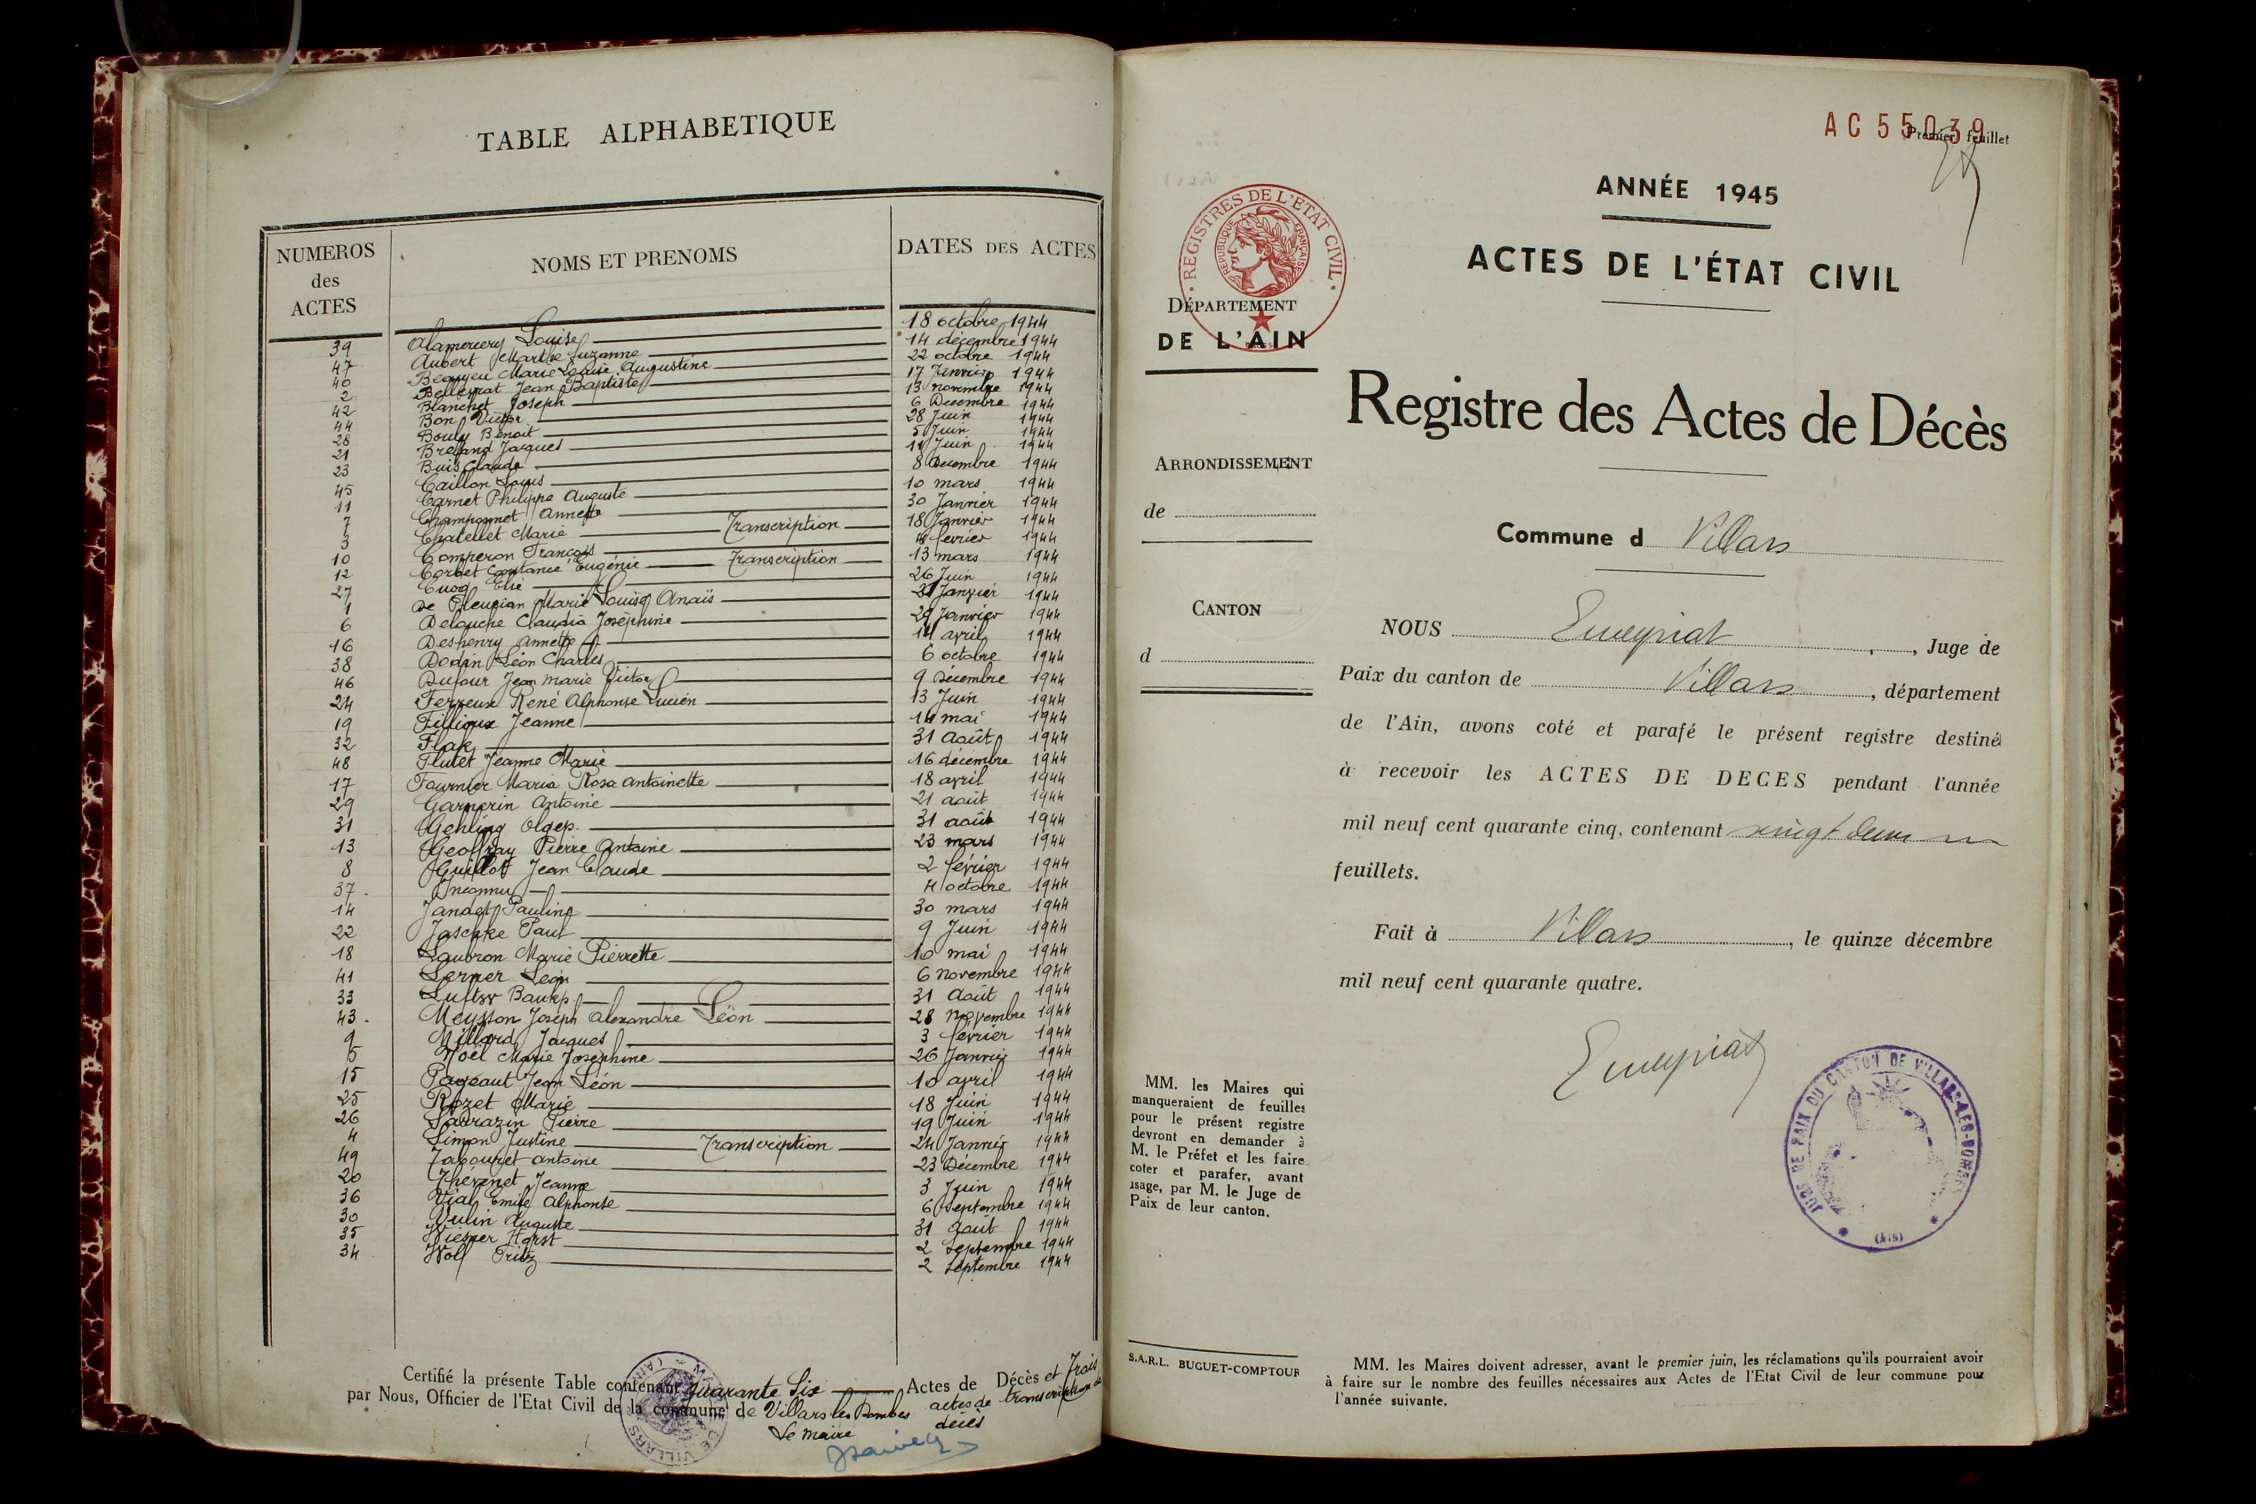 TABLE ALPHABETIQUE
NUMEROS des ACTES
NOMS ET PRENOMS
DATES DES ACTES
39 Alamercery Louise 18 octobre 1944
47 Aubert Marthe Suzanne 14 décembre 1944
40 Beaujeu Marie Louise Augustine 22 octobre 1944
2 Belleyrat Jean Baptiste 17 Janvier 1944
42 Blanchet Joseph 13 novembre 1944
44 Bon Victor 6 Decembre 1944
28 Bouly Benoit 28 Juin 1944
21 Brevand Jacques 5 Juin 1944
23 Buis Claude 11 Juin 1944
45 Caillon Louis 8 Decembre 1944
11 Carnet Philippe Auguste 10 mars 1944
7 Champonnet Annette 30 Janvier 1944
3 Chatellet Marie Transcription 18 Janvier 1944
10 Comperon François février 1944
12 Corbet Constance Eugénie Transcription 13 mars 1944
27 Cuoq Elie 26 Juin 1944
1 De Marie Louise Anaïs Janvier 1944
6 Delouche Claudia Joséphine 29 Janvier 1944
16 Deshenry Annette 14 avril 1944
38 Dodin Léon Charles 6 octobre 1944
46 Dufour Jean Marie Victor 9 Décembre 1944
24 Ferreux René Alphonse Lucien 13 Juin 1944
19 Fillioux Jeanne 14 mai 1944
32 Flak 31 Août 1944
48 Flutet Jeanne Marie 16 décembre 1944
17 Fournier Maria Rosa Antoinette 18 avril 1944
29 Garnerin Antoine 21 août 1944
31 Gehling Olgep. 31 août 1944
13 Geoffray Pierre Antoine 23 mars 1944
8 Guillot Jean Claude 2 février 1944
37 Inconnu 4 octobre 1944
14 Jandet Pauline 30 mars 1944
22 Jaschke Paul 9 Juin 1944
18 Laubron Marie Pierrette 10 mai 1944
41 Lerner Leon 6 novembre 1944
33 31 Août 1944
43 Meysson Joseph Alexandre Léon 28 Novembre 1944
9 Millard Jacques 3 février 1944
5 Noël Marie Joséphine 26 Janvier 1944
15 Pageaut Jean Léon 10 avril 1944
25 Rozet Marie 18 Juin 1944
26 Sarrazin Pierre 19 Juin 1944
4 Simon Justine Transcription 24 Janvier 1944
49 Tabouret Antoine 23 Décembre 1944
20 Thévenet Jeanne 3 Juin 1944
36 Vial Emile Alphonse 6 Septembre 1944
30 Vulin Auguste 31 Août 1944
35 Wiesner Horst 2 Septembre 1944
34 Woll Fritz 2 Septembre 1944
Certifié la présente Table contenant quarante Six Actes de Décès et Trois
par Nous, Officier de l'Etat Civil de la commune de Villars les Dombes actes de transcription de
décès
Le Maire
AC 55039
Premier feuillet
ANNÉE 1945
REGISTRES DE L'ETAT CIVIL
REPUBLIQUE FRANÇAISE
ACTES DE L'ÉTAT CIVIL
DÉPARTEMENT
DE L'AIN
Registre des Actes de Décès
ARRONDISSEMENT
de
Commune d Villars
CANTON
d
NOUS Emeyriat, Juge de
Paix du canton de Villars, département
de l'Ain, avons coté et parafé le présent registre destiné
à recevoir les ACTES DE DECES pendant l'année
mil neuf cent quarante cinq, contenant vingt deux
feuillets.
Fait à Villars, le quinze décembre
mil neuf cent quarante quatre.
Emeyriat
JUGE DE PAIX DU CANTON DE VILLARS-LES-DOMBES
(AIN)
MM. les Maires qui
manqueraient de feuilles
pour le présent registre
devront en demander à
M. le Préfet et les faire
coter et parafer, avant
usage, par M. le Juge de
Paix de leur canton.
S.A.R.L. BUGUET-COMPTOUR
MM. les Maires doivent adresser, avant le premier juin, les réclamations qu'ils pourraient avoir
à faire sur le nombre des feuilles nécessaires aux Actes de l'Etat Civil de leur commune pour
l'année suivante.